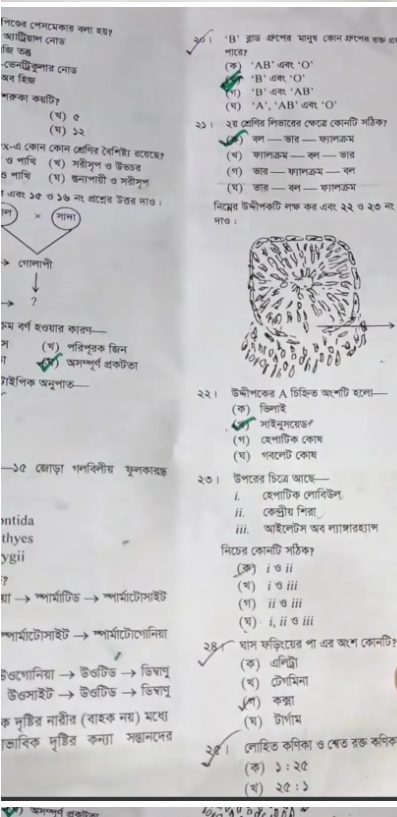 পেসমেকার বলা হয়?
নোড
-ভেনট্রিকুলার নোড
অব হিজ
কয়টি?
(খ) ৫
(ঘ) ১২
X-এ কোন কোন শ্রেণির বৈশিষ্ট্য রয়েছে?
ও পাখি (খ) সরীসৃপ ও উভচর
ও পাখি (ঘ) স্তন্যপায়ী ও সরীসৃপ
এবং ১৫ ও ১৬ নং প্রশ্নের উত্তর দাও :
× সাদা
গোলাপী
?
বর্ণ হওয়ার কারণ—
(খ) পরিপূরক জিন
অসম্পূর্ণ প্রকটতা
অনুপাত—
—১৫ জোড়া গলবিলীয় ফুলকারন্ধ্র
ontida
thyes
ygii
?
→ স্পার্মাটিড → স্পার্মাটোসাইট
স্পার্মাটোসাইট → স্পার্মাটোগোনিয়া
উওগোনিয়া → উওটিড → ডিম্বাণু
উওসাইট → উওটিড → ডিম্বাণু
দৃষ্টির নারীর (বাহক নয়) মধ্যে
দৃষ্টির কন্যা সন্তানদের
২০। 'B' ব্লাড গ্রুপের মানুষ কোন গ্রুপের রক্ত
পারে?
(ক) 'AB' এবং 'O'
'B' এবং 'O'
(গ) 'B' এবং 'AB'
(ঘ) 'A', 'AB' এবং 'O'
২১। ২য় শ্রেণির লিভারের ক্ষেত্রে কোনটি সঠিক?
(ক) বল — ভার — ফালক্রাম
(খ) ফালক্রাম — বল — ভার
(গ) ভার — ফালক্রাম — বল
(ঘ) ভার — বল — ফালক্রাম
নিচের উদ্দীপকটি লক্ষ কর এবং ২২ ও ২৩ নং
দাও :
২২। উদ্দীপকের A চিহ্নিত অংশটি হলো—
(ক) ভিলাই
(খ) সাইনুসয়েড
(গ) হেপাটিক কোষ
(ঘ) গবলেট কোষ
২৩। উপরের চিত্রে আছে—
i. হেপাটিক লোবিউল
ii. কেন্দ্রীয় শিরা
iii. আইলেটস অব ল্যাঙ্গারহ্যান্স
নিচের কোনটি সঠিক?
(ক) i ও ii
(খ) i ও iii
(গ) ii ও iii
(ঘ) i, ii ও iii
২৪। ঘাস ফড়িংয়ের পা এর অংশ কোনটি?
(ক) এলিট্রা
(খ) টেগমিনা
(গ) কক্সা
(ঘ) টার্গাম
২৫। লোহিত কণিকা ও শ্বেত রক্ত কণিক
(ক) ১ : ২৫
(খ) ২৫ : ১